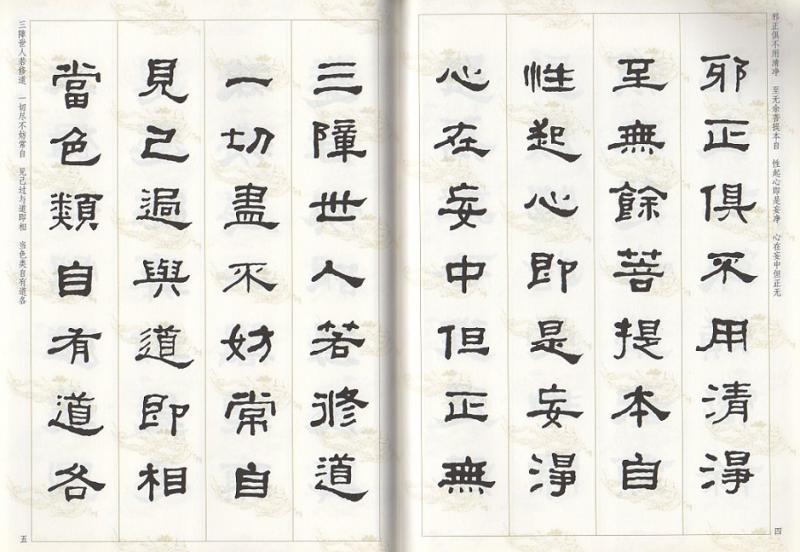 邪正俱不用清净　至无余菩提本自　性起心即是妄净　心在妄中但正无
邪正俱不用清淨
至無餘菩提本自
性起心即是妄淨
心在妄中但正無
四
三障世人若修道
一切盡不妨常自
見己過與道即相
當色類自有道各
三障世人若修道　一切尽不妨常自　见己过与道即相　当色类自有道各
五